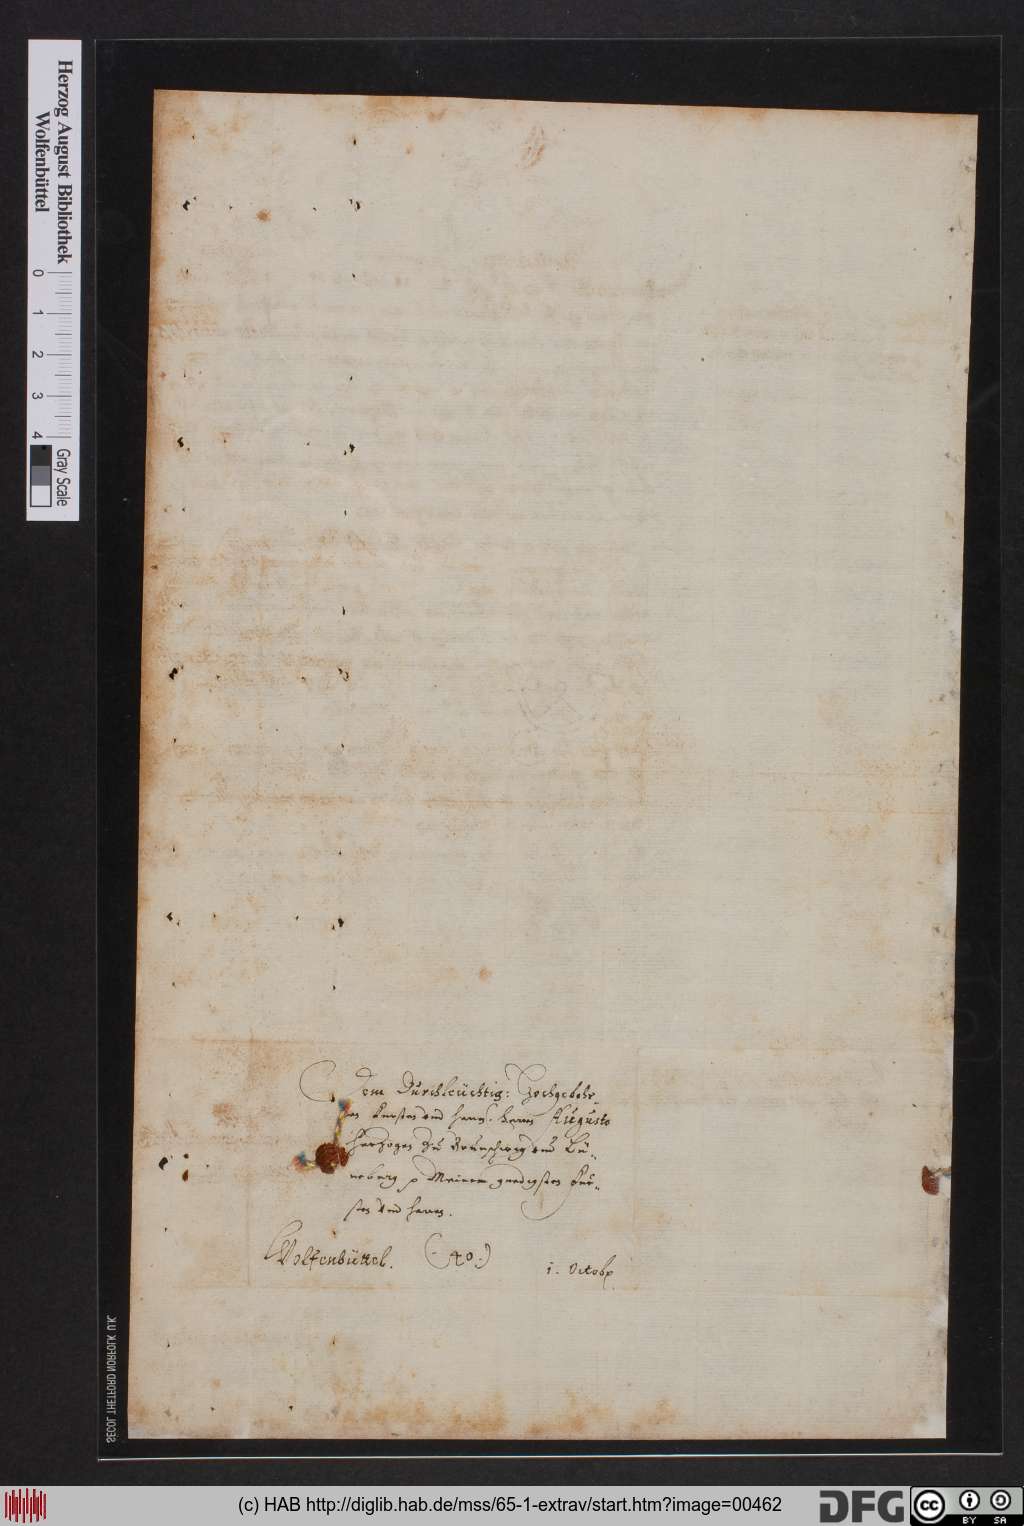 Herzog August Bibliothek
Wolfenbüttel
0 1 2 3 4
Gray Scale
Dem Durchleüchtig: Hochgebohr
nen Fursten und herrn. herrn Augusto
Hertzogen zu Brunschwig und Lü-
neburg p Meinem gnedigsten Fur-
sten und herrn.
Wolfenbüttel. (40.) 1. Octobr
SECOL THETFORD NORFOLK U.K.
(c) HAB http://diglib.hab.de/mss/65-1-extrav/start.htm?image=00462
DFG
cc
BY SA